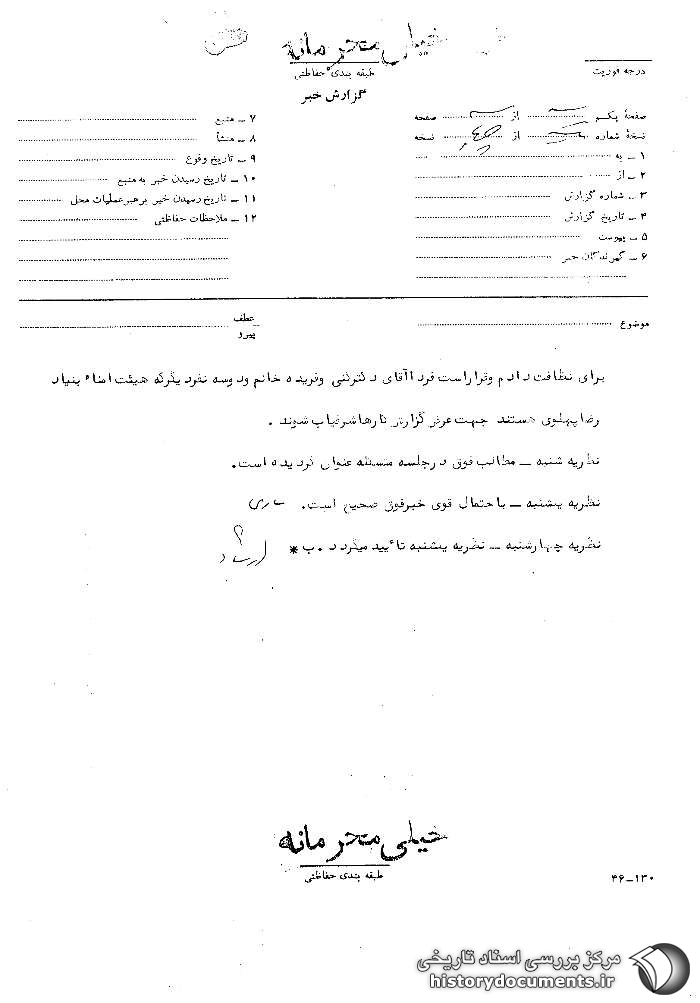 خیلی محرمانه
طبقه بندی حفاظتی
درجه فوریت
گزارش خبر
صفحهٔ یکم از صفحه
نسخهٔ شماره از نسخه
۱ ــ به
۲ ــ از
۳ ــ شماره گزارش
۴ ــ تاریخ گزارش
۵ ــ پیوست
۶ ــ گیرندگان خبر
۷ ــ منبع
۸ ــ منشأ
۹ ــ تاریخ وقوع
۱۰ ــ تاریخ رسیدن خبر به منبع
۱۱ ــ تاریخ رسیدن خبر برهبر عملیات محل
۱۲ ــ ملاحظات حفاظتی
موضوع
عطف
پیرو
برای نظافت دادم وقرار است فردا آقای دکترکنی وفریده خانم ودوسه نفر دیگر که هیئت امناء بنیاد
رضا پهلوی هستند جهت عرض گزارش کارها شرفیاب شوند .
نظریه شنبه ــ مطالب فوق در جلسه منسئله عنوان گردیده است.
نظریه یکشنبه ــ باحتمال قوی خبر فوق صحیح است.
نظریه چهارشنبه ــ نظریه یکشنبه تأیید میگردد . ب *
خیلی محرمانه
طبقه بندی حفاظتی
۴۶ــ۱۳۰
مرکز بررسی اسناد تاریخی
historydocuments.ir